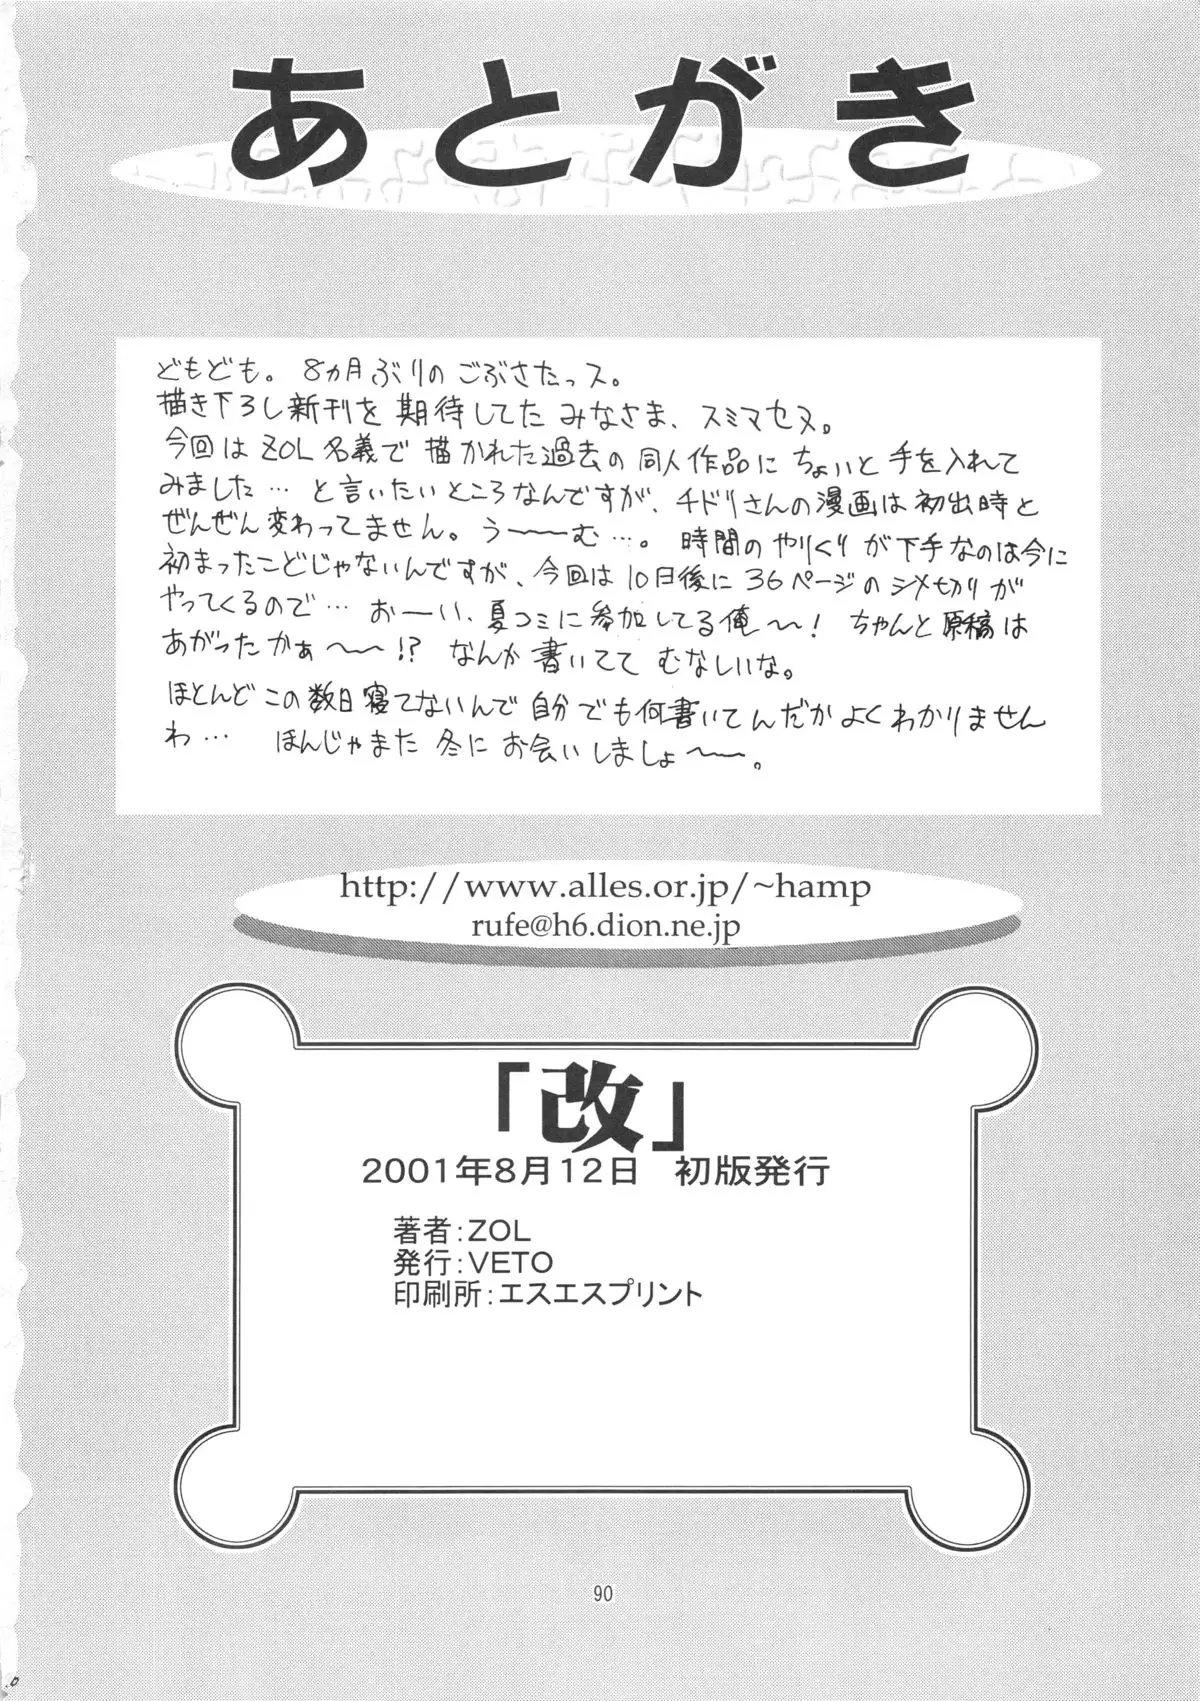 あとがき
どもども。8ヵ月ぶりのごぶさたっス。
描き下ろし新刊を期待してたみなさま、スミマセヌ。
今回はZOL名義で描かれた過去の同人作品にちょいと手を入れて
みました…と言いたいところなんですが、チドリさんの漫画は初出時と
ぜんぜん変わってません。う〜〜む…。時間のやりくりが下手なのは今に
初まったこどじゃないんですが、今回は10日後に36ページのシメ切りが
やってくるので…おーい、夏コミに参加してる俺〜〜!ちゃんと原稿は
あがったかぁ〜〜!?なんか書いてて むなしいな。
ほとんどこの数日寝てないんで自分でも何書いてんだかよくわかりません
わ…ほんじゃまた冬にお会いしましょ〜〜。
http://www.alles.or.jp/~hamp
rufe@h6.dion.ne.jp
「改」
2001年8月12日 初版発行
著者:ZOL
発行:VETO
印刷所:エスエスプリント
90